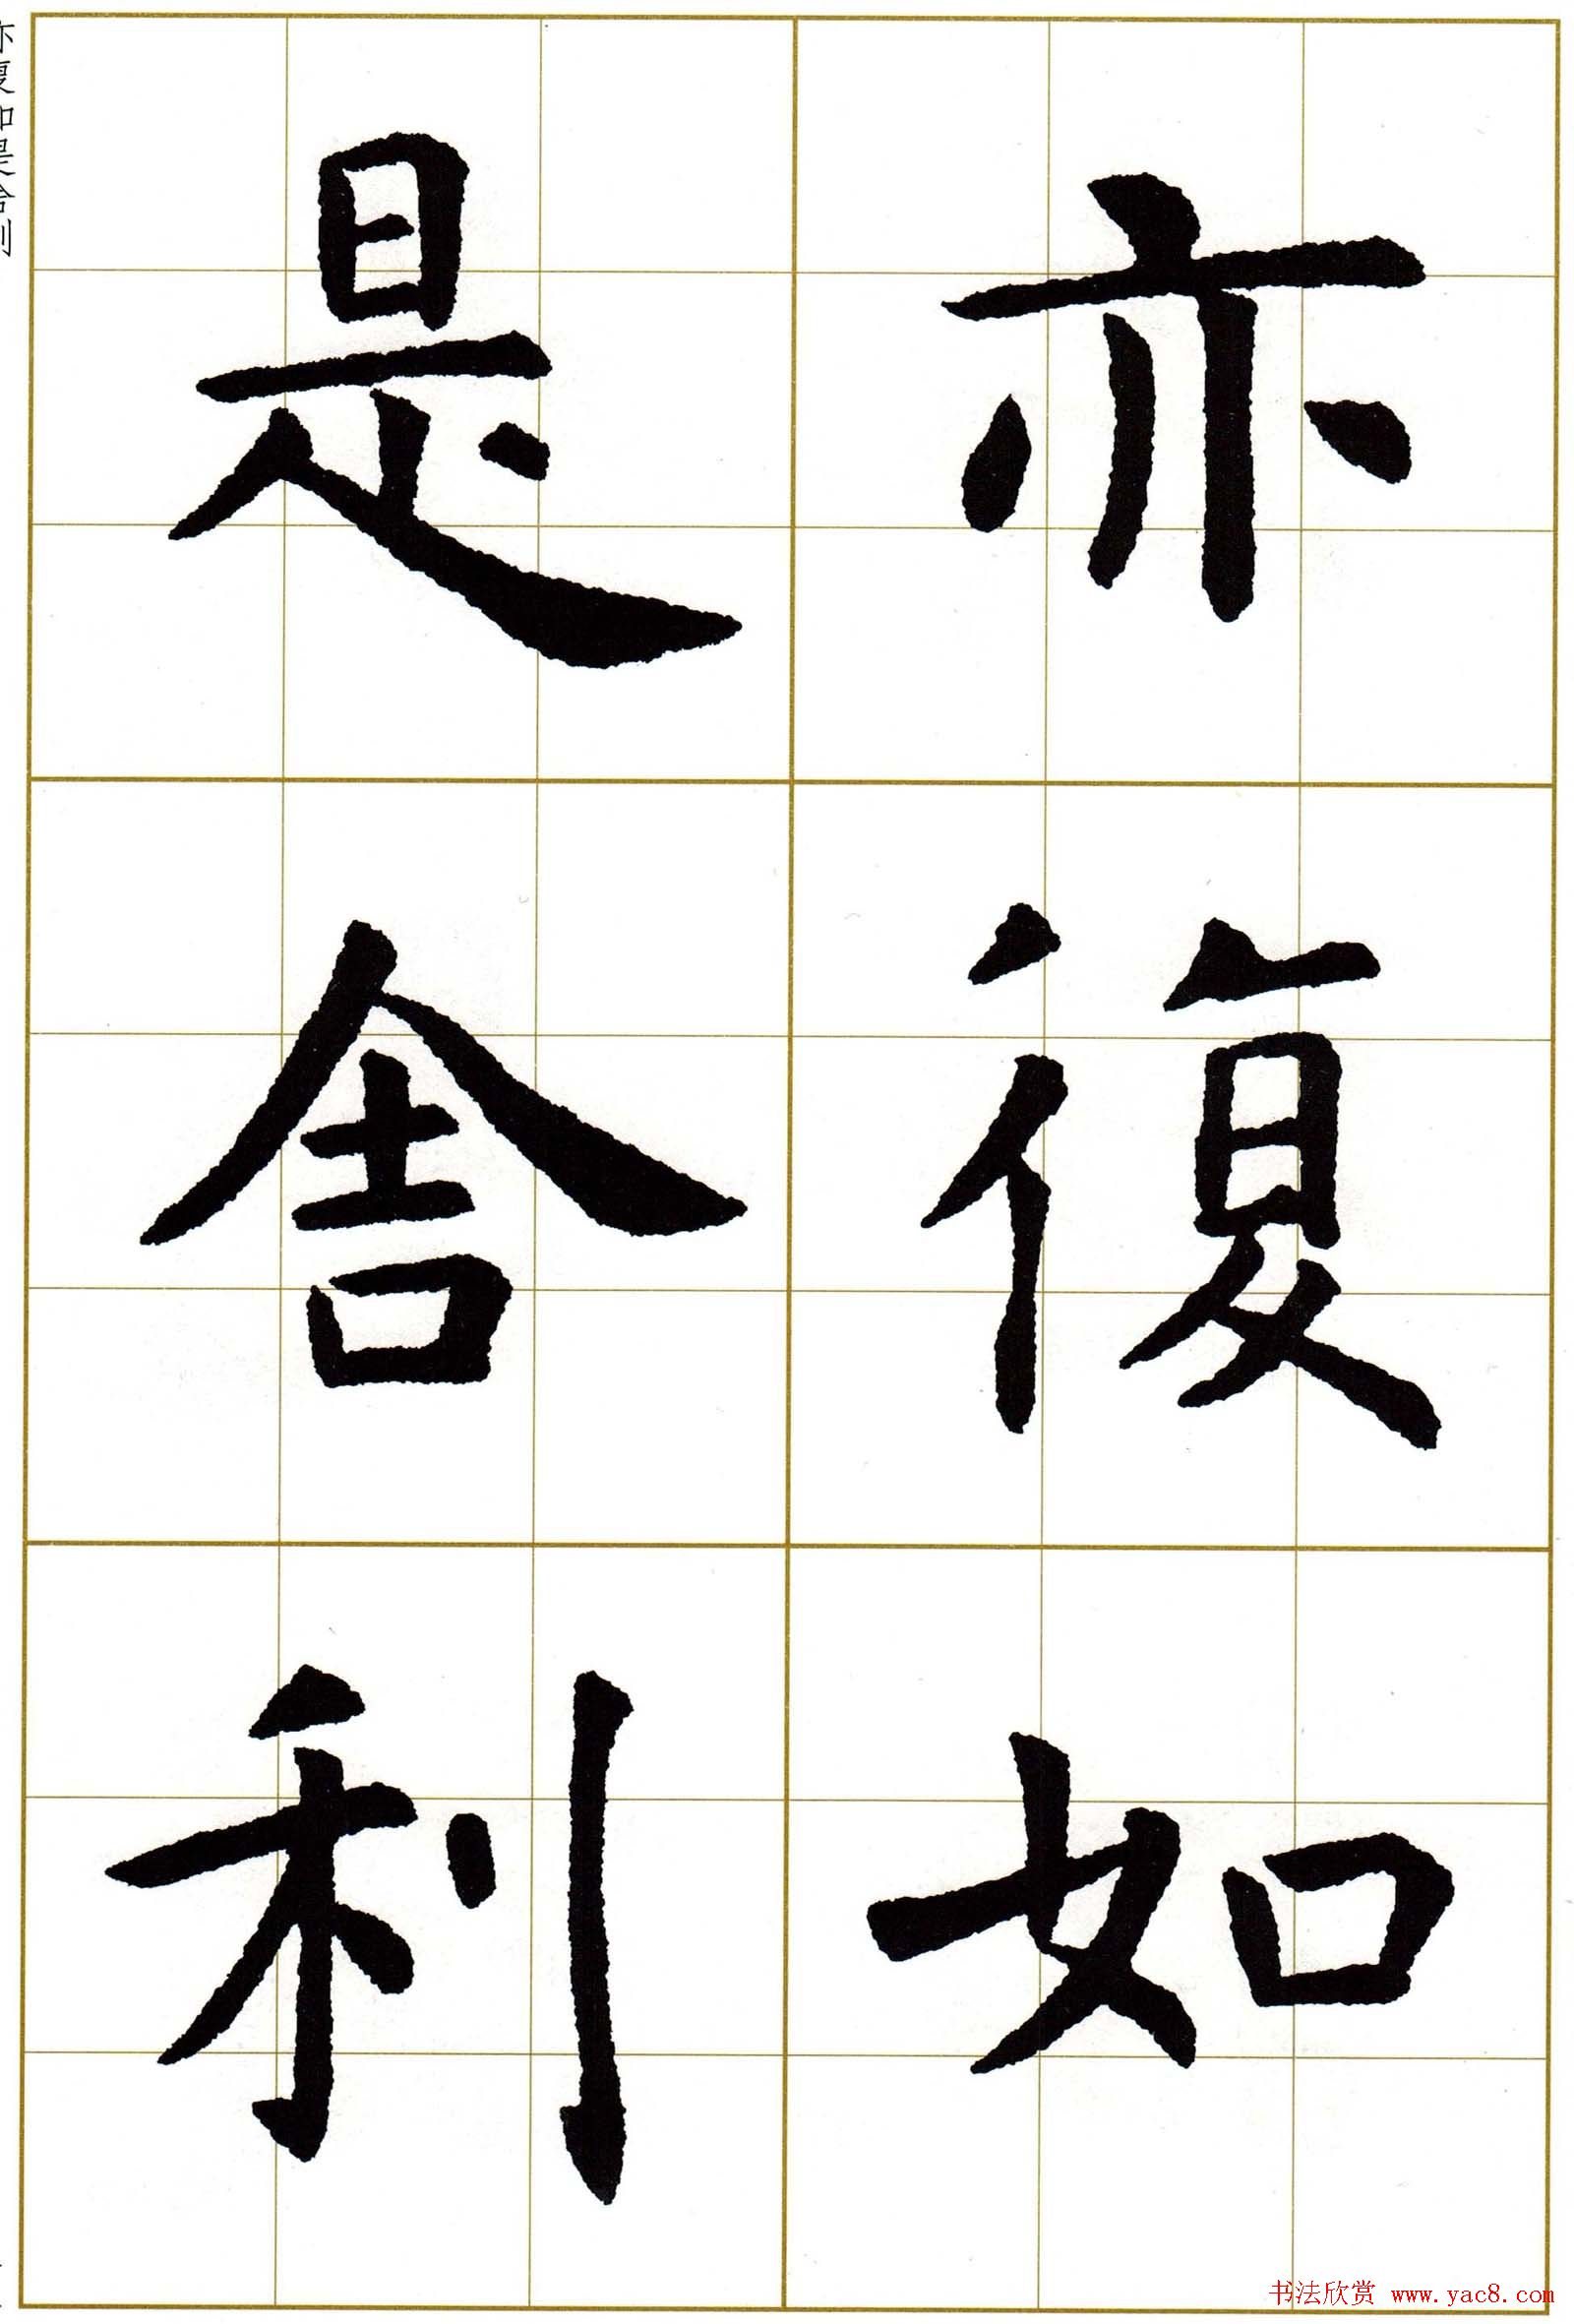 亦復如
是舍利
亦復如是舍利
书法欣赏 www.yac8.com